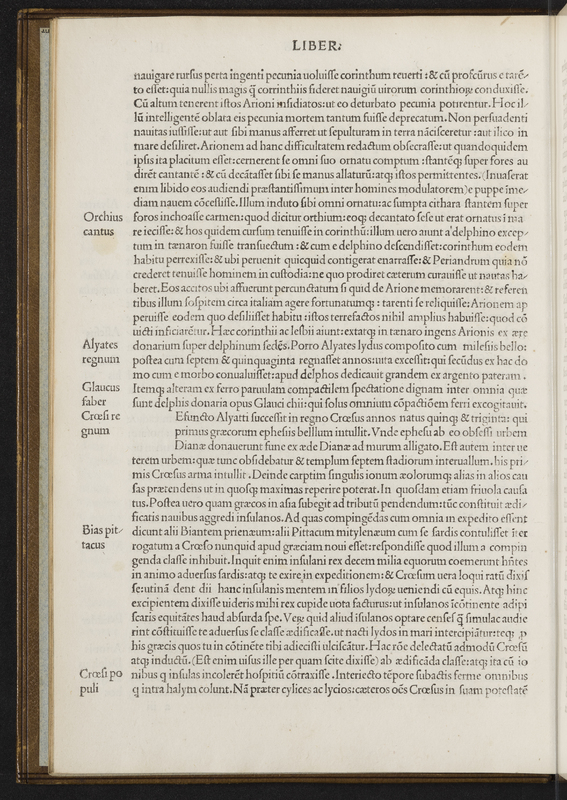 LIBER:
nauigare rursus perta ingenti pecunia uoluisse corinthum reuerti :& cū profcūrus e tarē-
to esset: quia nullis magis q̄ corrinthiis fideret nauigiū uirorum corinthioꝝ conduxisse.
Cū altum tenerent istos Arioni insidiatos: ut eo deturbato pecunia potirentur. Hoc il-
lū intelligentē oblata eis pecunia mortem tantum fuisse deprecatum. Non persuadenti
nauitas iussisse: ut aut sibi manus afferret ut sepulturam in terra nācisceretur : aut ilico in
mare desiliret. Arionem ad hanc difficultatem redactum obsecrasse: ut quandoquidem
ipsis ita placitum esset: cernerent se omni suo ornatu comptum : stantēq; super fores au
dirēt cantantē : & cū decātasset sibi se manus allaturū: atq; istos permittentes. (Inuaserat
enim libido eos audiendi præstantissimum inter homines modulatorem) e puppe ime-
diam nauem cōcessisse. Illum induto sibi omni ornatu: ac sumpta cithara stantem super
Orchius foros inchoasse carmen: quod dicitur orthium: eoq; decantato sese ut erat ornatus ī ma
cantus re iecisse: & hos quidem cursum tenuisse in corinthū: illum uero aiunt a'delphino excep-
tum in tænaron fuisse transuectum : & cum e delphino descendisset: corinthum eodem
habitu perrexisse: & ubi peruenit quicquid contigerat enarrasse: & Periandrum quia nō
crederet tenuisse hominem in custodia: ne quo prodiret cæterum curauisse ut nautas ha-
beret. Eos accitos ubi affuerunt percunctatum si quid de Arione memorarent: & referen
tibus illum sospitem circa italiam agere fortunatumq; : tarenti se reliquisse: Arionem ap
peruisse eodem quo desilisset habitu : istos terrefactos nihil amplius habuisse: quod cō
uicti inficiarētur. Hæc corinthii ac lesbii aiunt: extatq; in tænaro ingens Arionis ex ære
Alyates donarium super delphinum sedēs. Porro Alyates lydus composito cum milesiis bello:
regnum postea cum septem & quinquaginta regnasset annos: uita excessit: qui secūdus ex hac do
mo cum e morbo conualuisset: apud delphos dedicauit grandem ex argento pateram.
Glaucus Itemq; alteram ex ferro paruulam compactilem spectatione dignam inter omnia quæ
faber sunt delphis donaria opus Glauci chii: qui solus omnium cōpactiōem ferri excogitauit.
Crœsi re Efuncto Alyatti successit in regno Crœsus annos natus quinq; & triginta: qui
gnum primus græcorum ephesiis belllum intullit. Vnde ephesu ab eo obsessi urbem
Dianæ donauerunt fune ex æde Dianæ ad murum alligato. Est autem inter ue
terem urbem: quæ tunc obsidebatur & templum septem stadiorum interuallum. his pri-
mis Crœsus arma intullit . Deinde carptim singulis ionum æolorumq; alias in alios cau
sas prætendens ut in quosq; maximas reperire poterat. In quosdam etiam friuola causa
tus. Postea uero quam græcos in asia subegit ad tributū pendendum: tūc constituit ædi-
ficatis nauibus aggredi insulanos. Ad quas compingēdas cum omnia in expedito essent
Bias pit- dicunt alii Biantem prienæum: alii Pittacum mitylenæum cum se sardis contulisset īter
tacus rogatum a Crœso nunquid apud græciam noui esset: respondisse quod illum a compin
genda classe inhibuit. Inquit enim insulani rex decem milia equorum coemerunt hn̄tes
in animo aduersus sardis: atq; te exire in expeditionem: & Crœsum uera loqui ratū dixis
se: utinā dent dii hanc insulanis mentem in filios lydoꝝ ueniendi cū equis. Atq; hinc
excipientem dixisse uideris mihi rex cupide uota facturus: ut insulanos īcōtinente adipi
scaris equitātes haud absurda spe. Veꝝ quid aliud isulanos optare censes q̄ simulac audie
rint cōstituisse te aduersus se classē ædificasse. ut nacti lydos in mari intercipiātur: teq; ꝓ
his græcis quos tu in cōtinēre tibi adiecisti ulciscātur. Hac rōe delectatū admodū Crœsū
atq; inductū. (Est enim uisus ille per quam scite dixisse) ab ædificāda classe: atq; ita cū io
Crœsi po nibus q insulas incolerēt hospitiū cōtraxisse . Interiecto tēpore subactis ferme omnibus
puli q intra halym colunt. Nā præter cylices ac lycios: cæteros oēs Crœsus in suam potestatē